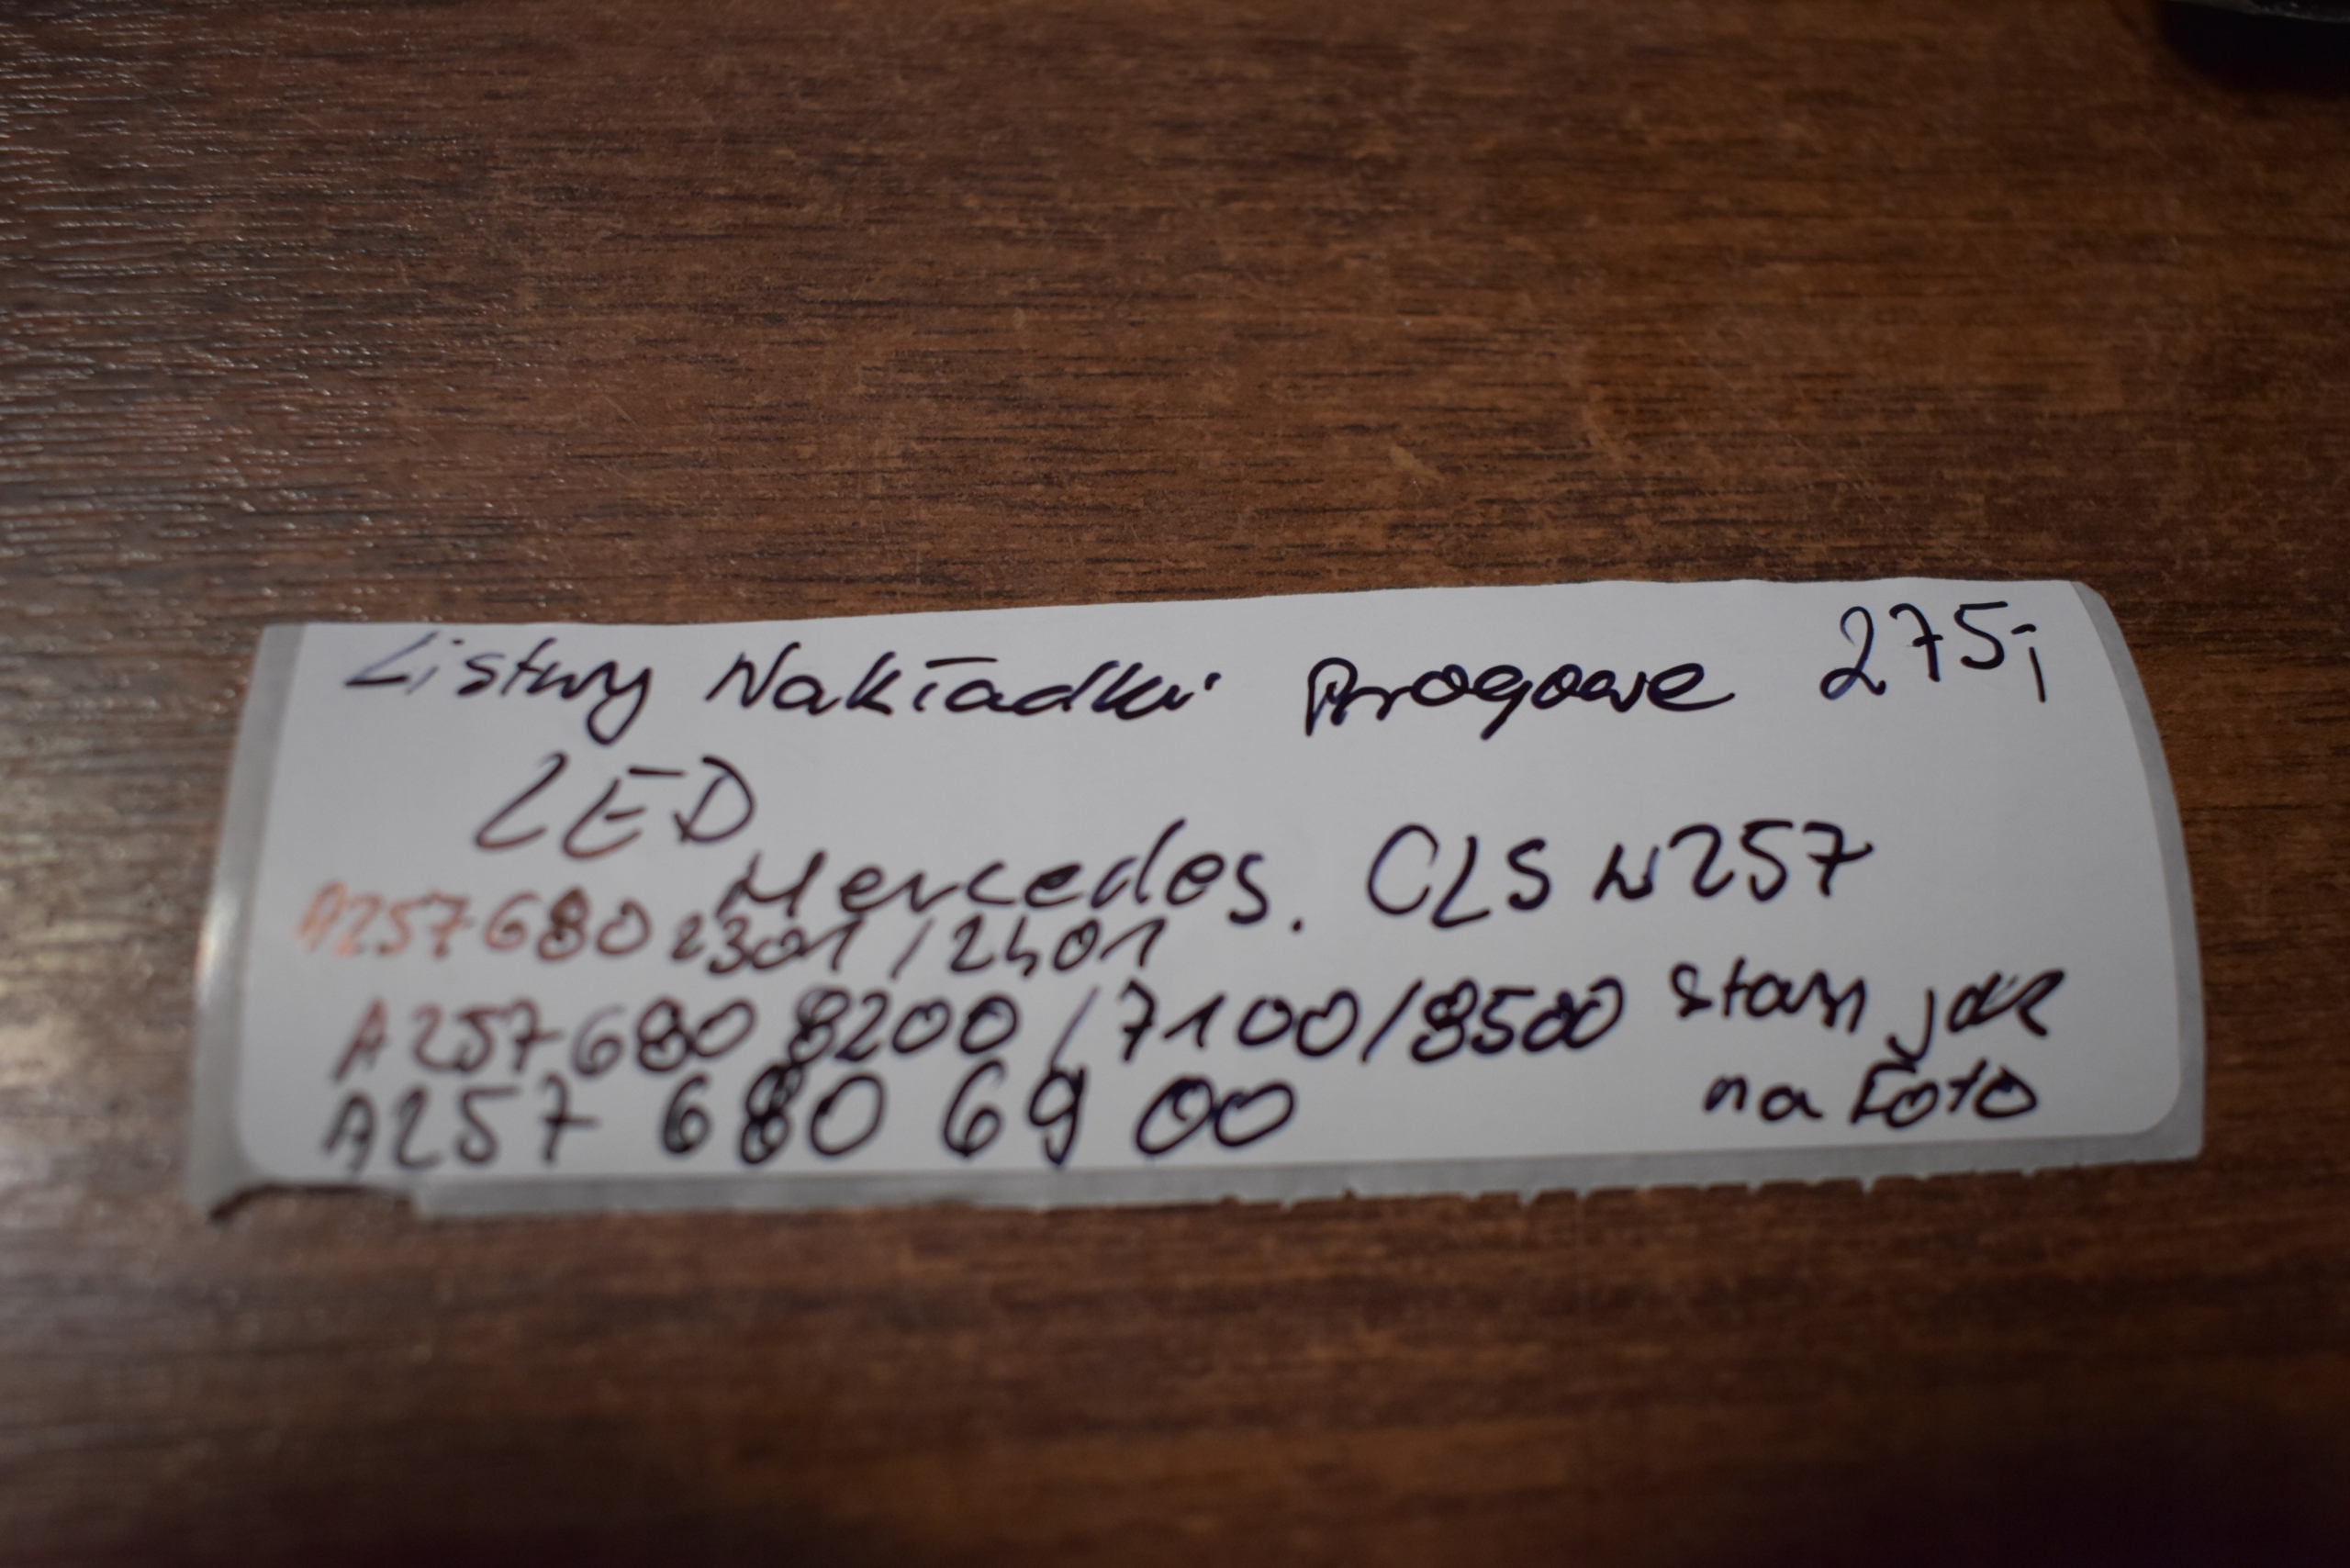 Listwy Nakładki Progowe 275j
LED
Mercedes. CLS W257
A257 680 2301 / 2401
A 257 680 8200 / 7100 / 8500 stan jak
A257 680 69 00 na Foto